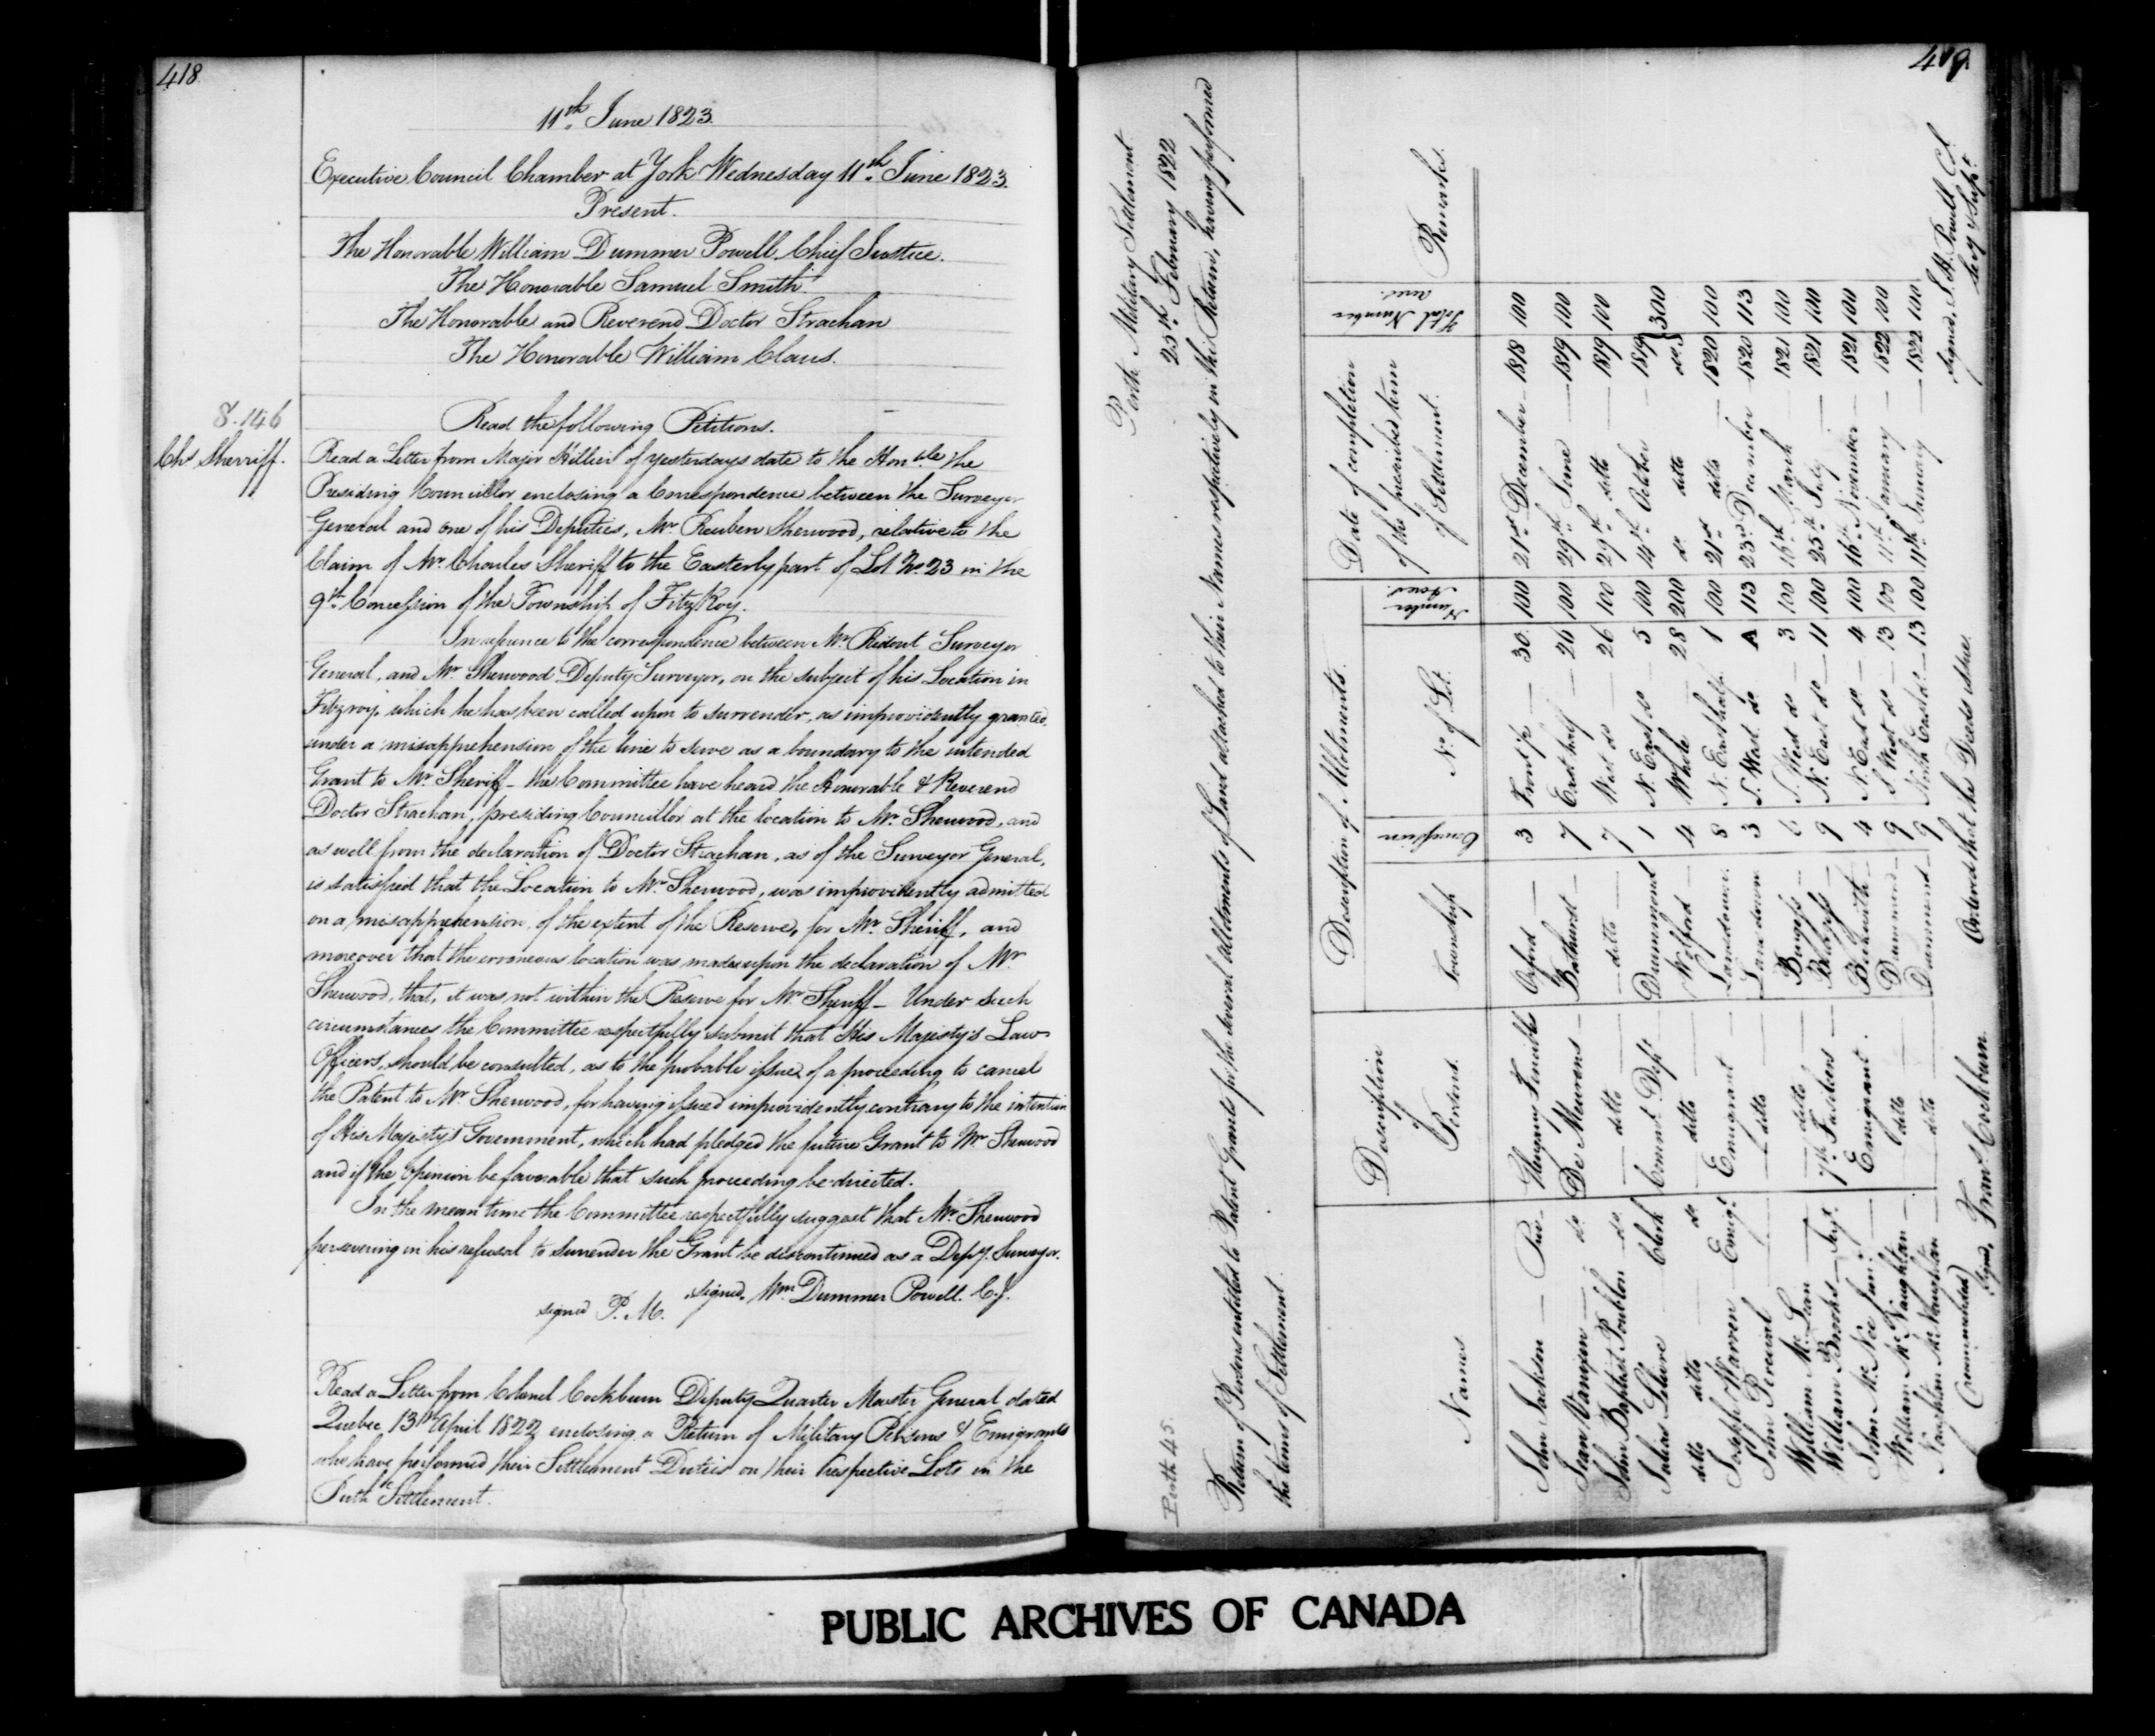 418
11th June 1823.
Executive Council Chamber at York Wednesday 11th June 1823.
Present.
The Honorable William Dummer Powell, Chief Justice.
The Honorable Samuel Smith
The Honorable and Reverend Doctor Strachan
The Honorable William Claus.
Read the following Petitions.
S. 146
Chs Sherriff.
Read a Letter from Major Hillier of yesterdays date to the Honble the
Presiding Councillor enclosing a Correspondence between the Surveyor
General and one of his Deputies, Mr Reuben Sherwood, relative to the
Claim of Mr Charles Sheriff to the Easterly part of Lot No 23 in the
9th Concession of the Township of FitzRoy.
In reference to the correspondence between Mr Ridout Surveyor
General, and Mr Sherwood Deputy Surveyor, on the subject of his Location in
Fitzroy, which he has been called upon to surrender, as improvidently granted,
under a misapprehension of the line to serve as a boundary to the intended
Grant to Mr Sheriff – the Committee have heard the Honorable & Reverend
Doctor Strachan, presiding Councillor at the location to Mr Sherwood, and
as well from the declaration of Doctor Strachan, as of the Surveyor General,
is satisfied that the Location to Mr Sherwood, was improvidently admitted
on a misapprehension, of the extent of the Reserve, for Mr Sheriff, and
moreover that the erroneous location was made upon the declaration of Mr
Sherwood, that, it was not within the Reserve for Mr Sheriff – Under such
circumstances the Committee respectfully submit that His Majesty's Law
Officers, should be consulted, as to the probable issue, of a proceeding to cancel
the Patent to Mr Sherwood, for having issued improvidently contrary to the intention
of His Majesty's Government, which had pledged the future Grant to Mr Sherwood
and if the Opinion be favorable that such proceeding be directed.
In the mean time the Committee respectfully suggest that Mr Sherwood
persevering in his refusal to surrender the Grant be discontinued as a Depy. Surveyor.
signed, Wm Dummer Powell. C.J.
signed P. M.
Read a Letter from Colonel Cockburn Deputy Quarter Master General dated
Quebec 13th April 1822 enclosing a Return of Military Persons & Emigrants
who have performed their Settlement Duties on their respective Lots in the
Perth Settlement.
419
Perth Military Settlement
25th February 1822
Perth 45.
Return of Persons entitled to Patent Grants for the several allotments of Land attached to their Names respectively in this Return, having performed
the terms of Settlement.
Names Description of Persons. Description of Allotments. Date of completion of the prescribed term of Settlement. Total Number Remarks.
Township Concession No. of Lot. Number Acres.
John Jackson — Glengarry Fencibles Oxford — 3 Front ½ — 30. 100 21st December 1818 100
Jean — do De Meurons — Bathurst — 7 East half — 26 100 29th June — 1819 100
John Baptist — do — ditto — — ditto — 7 West do — 26 100 29th ditto — 1819 100
Clerk Drummond 1 N. East do — 5 100 14th October — 1819
ditto ditto — do — ditto — Wolford — 4 Whole — 28 200 do ditto do 300
Joseph Warren — Emigt Emigrant — Lansdowne 8 N. East half 1 100 21st ditto — 1820 100
John Percival — ditto — Lansdown 3 S. West do A 113 23rd December 1820 113
William McLean — — ditto — Burgess — 6 S. West do — 3 100 16th March — 1821 100
William Brooks — Burgess — 9 N. East do — 11 100 25th July — 1821 100
John McNee Junr — Emigrant. Beckwith — 4 N. East do — 4 100 16th November — 1821 100
William McNaughton — ditto — Drummond — 9 S. West do — 13 100 11th January — 1822 100
Naughton McNaughton — ditto — Drummond — 9 North East do — 13 100 11th January — 1822 100
(Countersigned)
Signed, Frans Cockburn
Ordered that the Deeds issue.
Signed, Powell
Secy & Supt.
PUBLIC ARCHIVES OF CANADA